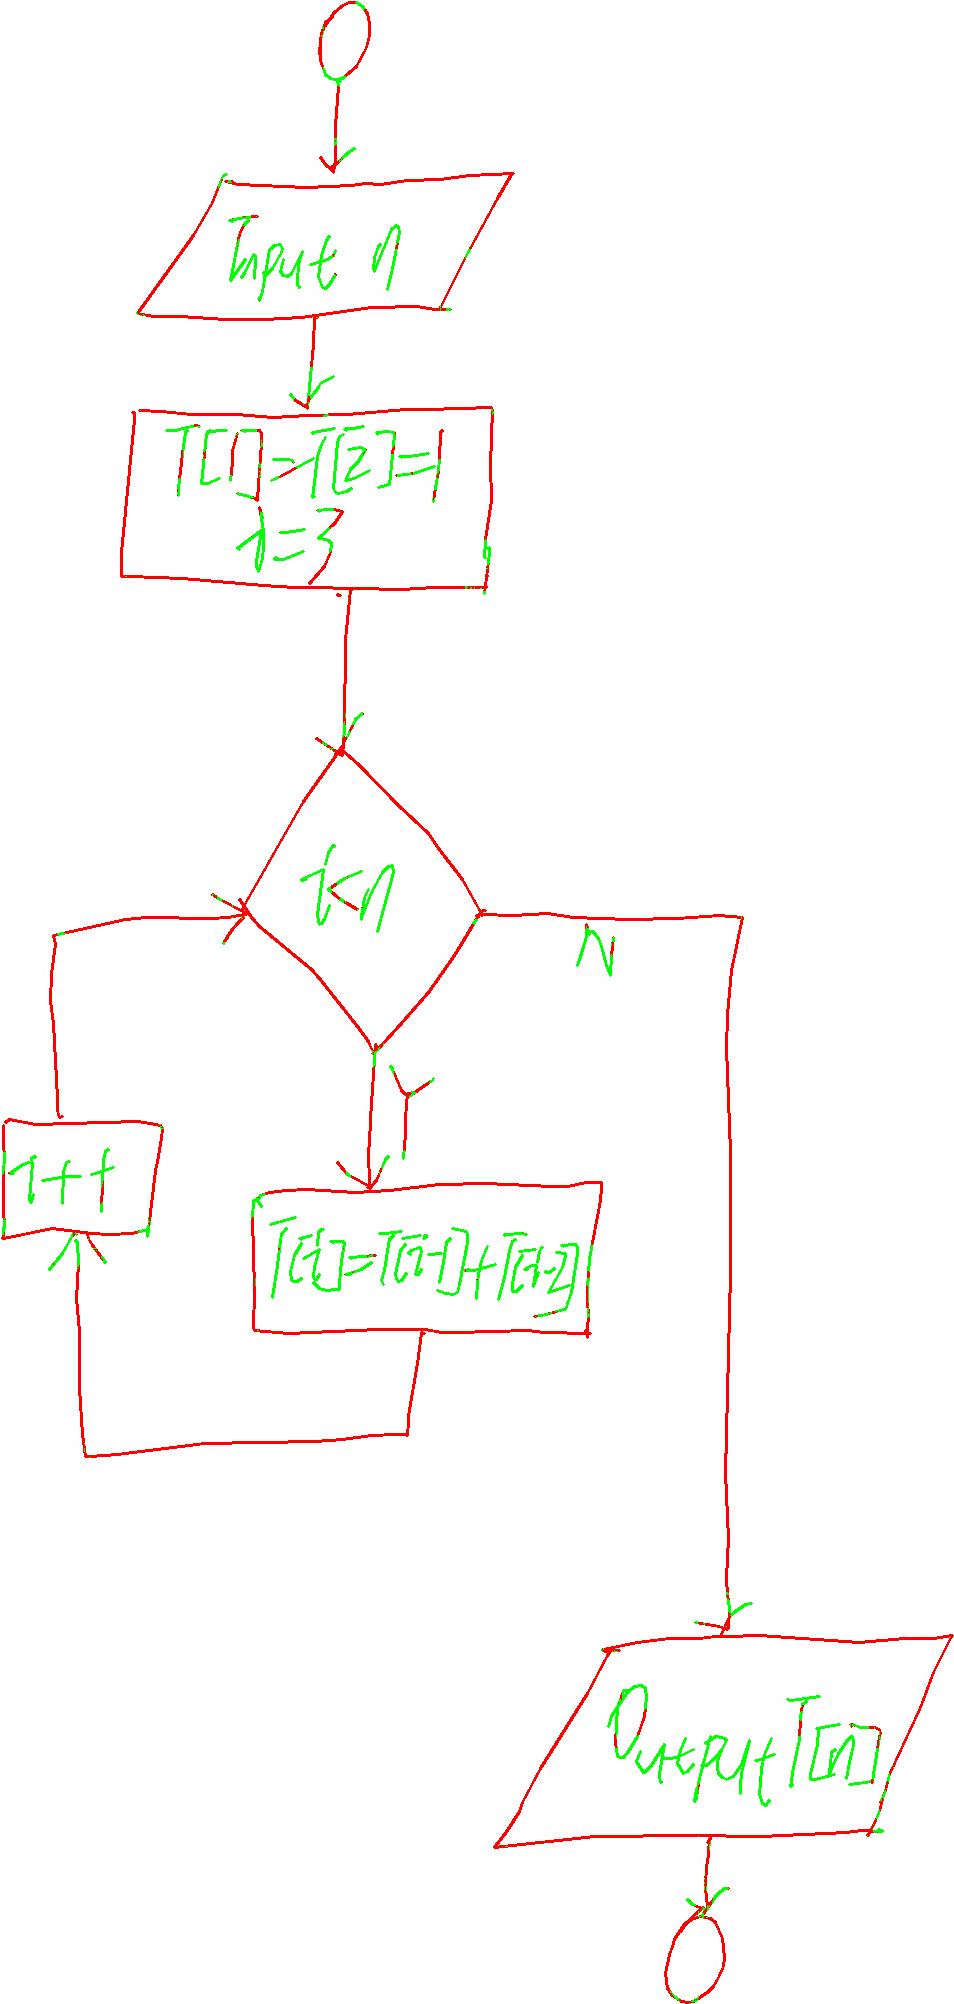 Input n
T[1]=T[2]=1
i=3
i<n
N
Y
i++
T[i]=T[i-1]+T[i-2]
Output T[n]